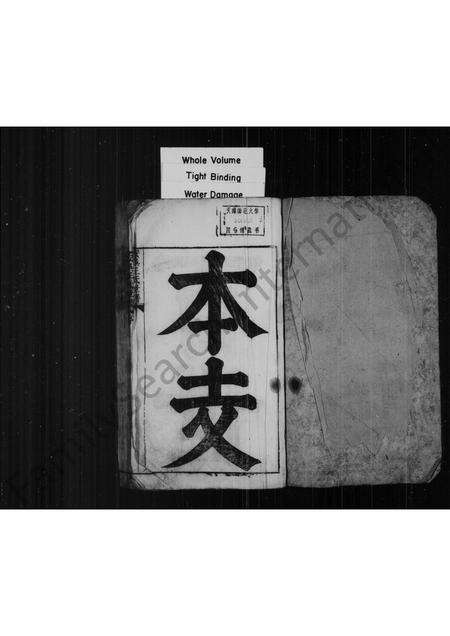 Whole Volume
Tight Binding
Water Damage
天津師范大学
図書館蔵書
本
支
FamilySearch International